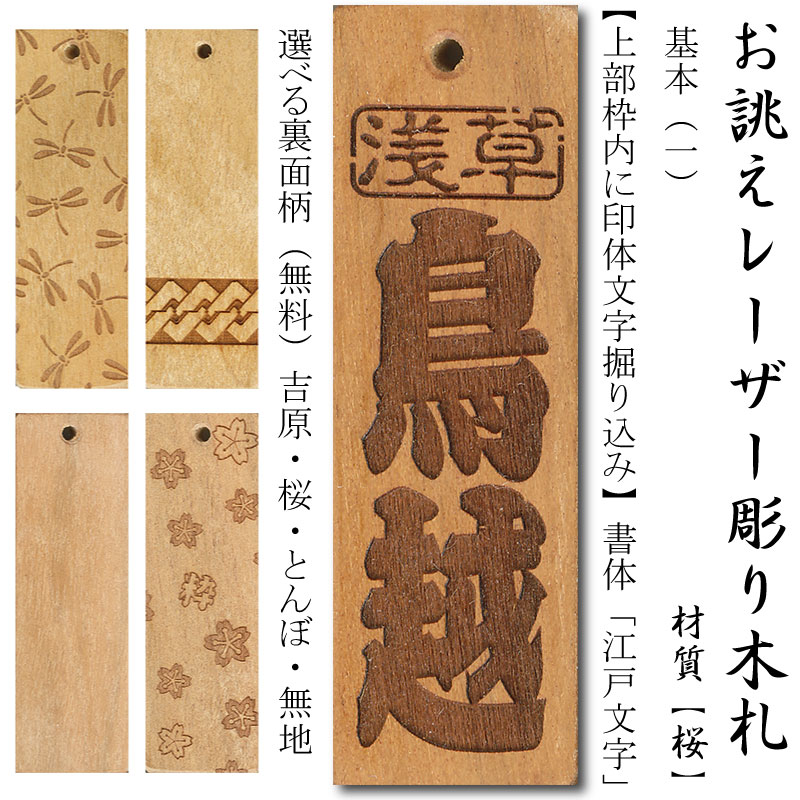 お誂えレーザー彫り木札
材質【桜】
基本（一）
【上部枠内に印体文字掘り込み】 書体「江戸文字」
浅草
鳥越
選べる裏面柄（無料）吉原・桜・とんぼ・無地